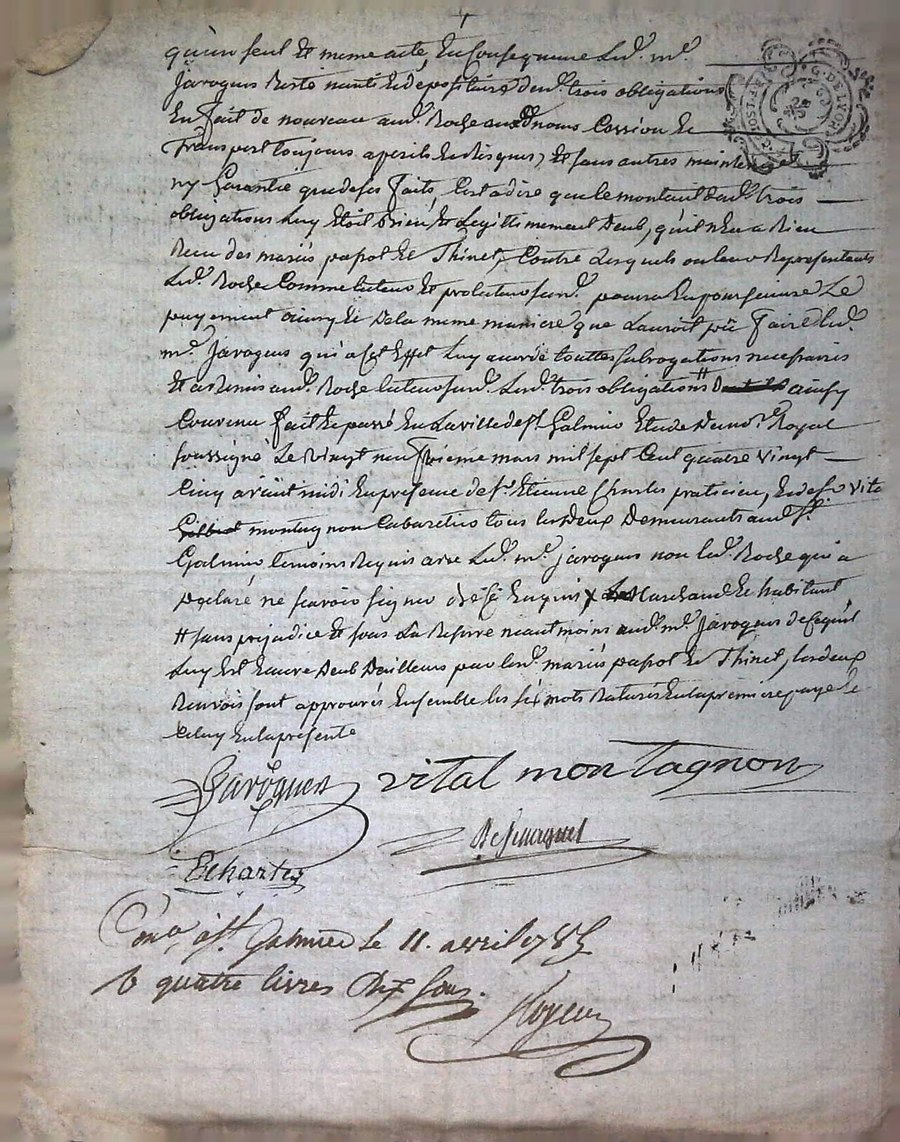 qu'un seul et meme acte, En Consequence Led. me.
Javogues Reste nanti Et depositaire desd. trois obligations
En fait de nouveau aud. Roche au d. nom Cession Et
Transport toujours a perils Et Risques, Et sans autres mainten
ny Garantie que de ses faits C'est a dire que le montant desd. trois
obligations Luy Etoit Bien Et Legittimement Deub, qu'il n'En a Rien
Receu des mariés papot Et Thinet, Contre Lesquels ou leurs Representants
Led. Roche Comme tuteur Et protuteur poura En poursuivre Le
payement ainsy Et De la meme maniere que Lauroit pû faire led.
me. Javogues qui a Cet Effet Luy accorde touttes subrogations necessaires
Et a Remis aud. Roche tuteur Lesd. trois obligations # ainsy
Convenu fait Et passé En La ville de St. Galmier Etude du nore. Royal
soussigné Le vingt neufvieme mars mil sept Cent quatre vingt
Cinq avant midi En presence de sr. Etienne Charles praticien, Et de sr. vital
Gilbert montagnon Cabaretier tous Les deux Demeurants aud. St.
Galmier temoins Requis avec Led. me. Javogues non led. Roche qui a
Declaré ne scavoir signer de Ce Enquis x Marchand Et habitant
# sans prejudice Et sous La Reserve neantmoins aud. me. Javogues de Ce qu'il
Luy Est Encore Deub D'ailleurs par lesd. mariés papot Et Thinet, les deux
Renvois sont approuvés Ensemble les six mots Raturés En la premiere page Et
Celuy En la presente
Javogues vital montagnon
Echarles
Con.lé à St. Galmier le 11. avril 1785
R quatre livres Dix sous.